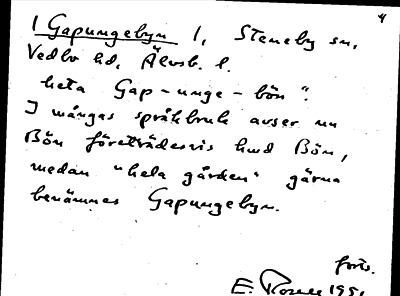 4
1 Gapungebyn 1, Steneby sn,
Vedbo hd, Älvsb. l.
heta Gap-unge-bön".
I mångas språkbruk avser nu
Bön företrädesvis hmd Bön,
medan "hela gården" gärna
benämnes Gapungebyn.
forts.
E. 195